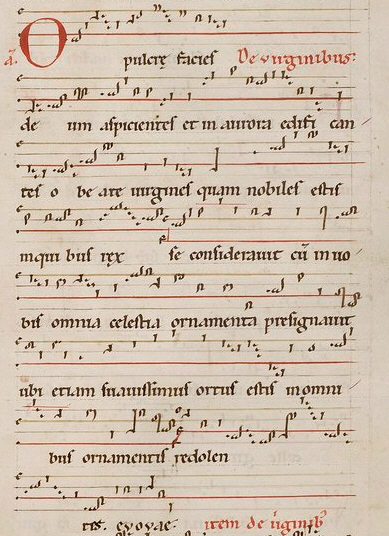 A. O pulcrę facies De virginibus.
de um aspicientes et in aurora edifi can
tes o be ate uirgines quam nobiles estis
in qui bus rex se considerauit cū in uo
bis omnia celestia ornamenta presignauit
ubi etiam suauissimus ortus estis in omni
bus ornamentis redolen
tes. evovae. item de v̄ginib⁹